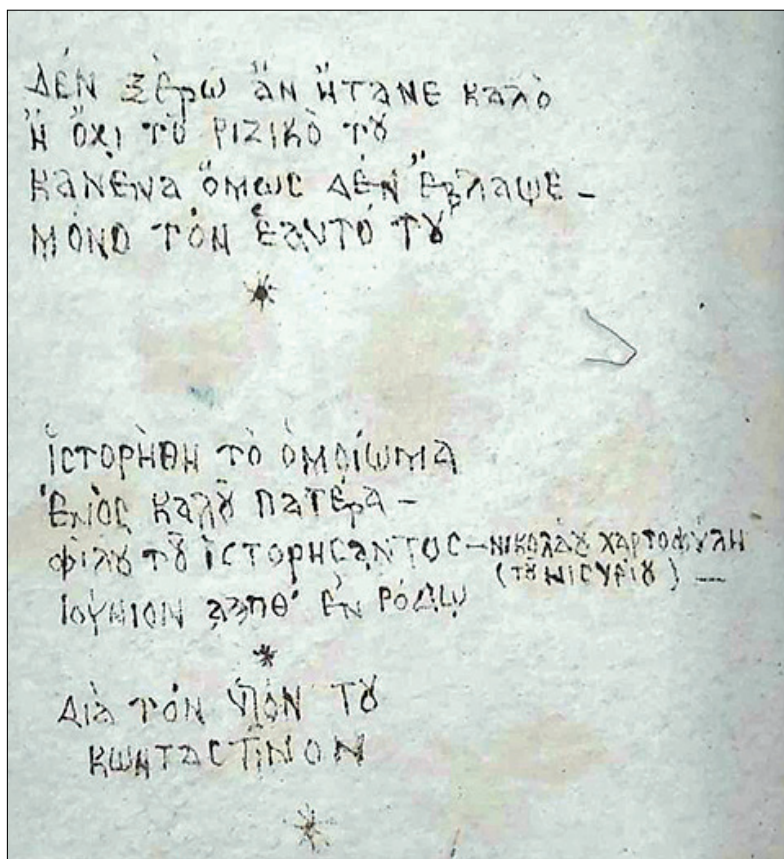 ΔΕΝ ΞΈΡΩ ἊΝ ἬΤΑΝΕ ΚΑΛῸ
Ἢ ὌΧΙ ΤῸ ΡΙΖΙΚῸ ΤȢ
ΚΑΝΈΝΑ ὍΜΩC ΔῈΝ ἜΒΛΑΨΕ –
ΜΌΝΟ ΤῸΝ ἙΑΥΤΌ ΤȢ
ἹCΤΟΡΉΘΗ ΤῸ ὉΜΟΊΩΜΑ
ἙΝῸC ΚΑΛȢ͂ ΠΑΤΈΡΑ –
ΦΊΛȢ ΤȢ͂ ἹCΤΟΡΉCΑΝΤΟC – ΝΙΚΟΛΆȢ ΧΑΡΤΟΦΎΛΗ
(ΤȢ͂ ΝΙCΥΡΊȢ) —
ἸΟΎΝΙΟΝ ͵ΑϠΠΘ' ἘΝ ΡΌΔῼ
ΔΙᾺ ΤῸΝ ΥἹῸΝ ΤȢ
ΚΩΝΤΑCΤΙ͂ΝΟΝ